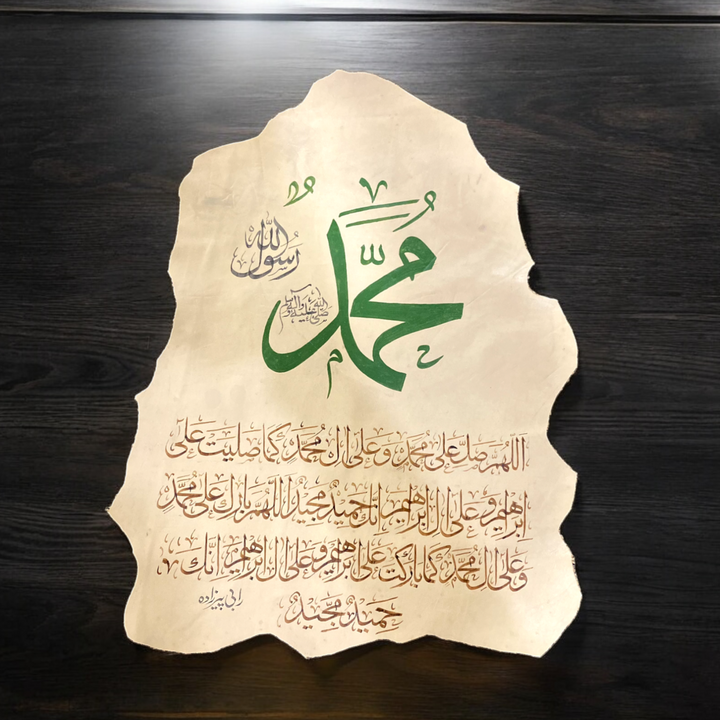 محمد
رسول الله
صلى الله عليه وآله وسلم
اللهم صل على محمد وعلى ال محمد كما صليت على
ابراهيم وعلى ال ابراهيم انك حميد مجيد اللهم بارك على محمد
وعلى ال محمد كما باركت على ابراهيم وعلى ال ابراهيم انك
حميد مجيد
رابی پیرزاده